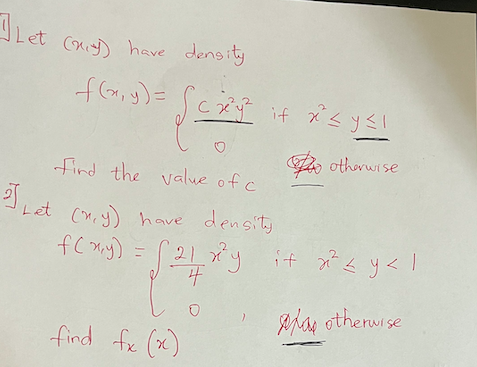 1] Let (x,y) have density
f(x,y) = { c x²y² if x² ≤ y ≤ 1
0 otherwise
find the value of c
2] Let (x,y) have density
f(x,y) = { 21/4 x²y if x² ≤ y < 1
0, otherwise
find fx (x)